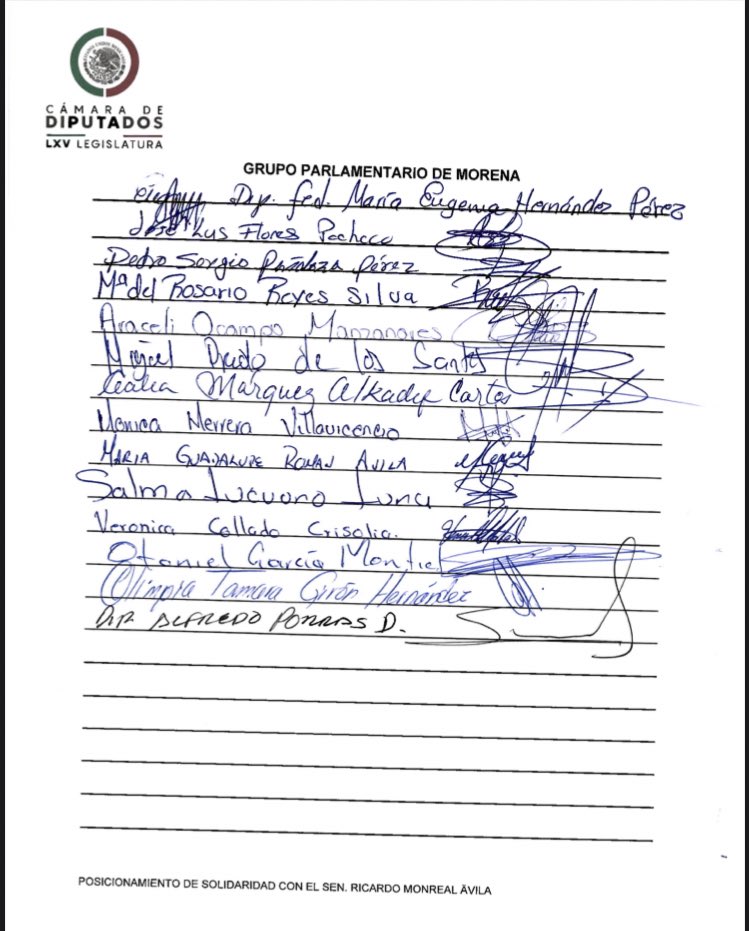 CÁMARA DE
DIPUTADOS
LXV LEGISLATURA
GRUPO PARLAMENTARIO DE MORENA
Dip. fed. María Eugenia Hernández Pérez
José Luis Flores Pacheco
Pedro Sergio Peñaloza Pérez
Mª del Rosario Reyes Silva
Araceli Ocampo Manzanares
Miguel Prado de los Santos
Márquez Alkadef Cortes
Monica Herrera Villavicencio
MARIA GUADALUPE ROMAN AVILA
Salma Luévano Luna
Veronica Collado Crisolia.
Otoniel García Montiel
Olimpia Tamara Girón Hernández
DIP. ALFREDO PORRAS D.
POSICIONAMIENTO DE SOLIDARIDAD CON EL SEN. RICARDO MONREAL ÁVILA